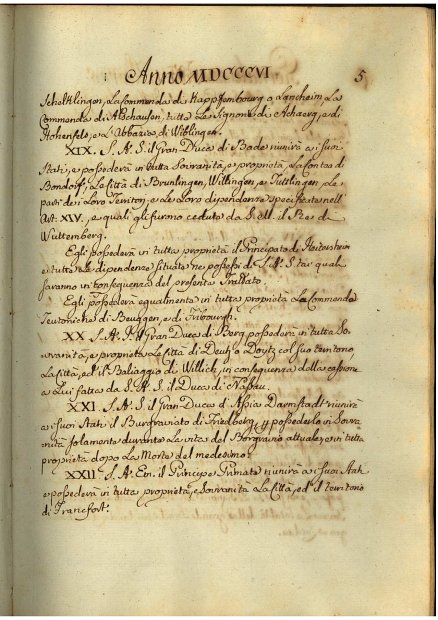 : Anno MDCCCVI. 5
Schelklingen, La Commenda di Kappfembourg o Laucheim La
Commenda di Alschausen, tutte Le Signorie di Achberg, e di
Hohenfels, e L'Abbazia di Wiblingen.
XIX. S. A. S. il Gran Duca di Bade riunirà a i suoi
Stati, e possederà in tutta Sovranità, e proprietà, La Contea di
Bondorf, Le Città di Brunlingen, Willingen, e Tuttlingen, Le
parti de i Loro Territorj, e Le Loro dipendenze specificate nell'
Art. XIV, e quali gli furono cedute da S. M. il Re di
Wurtemberg.
Egli possederà in tutta proprietà il Principato di Heitersheim
e tutte Le dipendenze situate ne possessi di S. A. S. tai quali
saranno in conseguenza del presente Trattato.
Egli possederà egualmente in tutta proprietà La Commenda
Teutoniche di Beuggen, e di Fribourgh.
XX. S. A. I. il Gran Duca di Berg possederà in tutta So-
vranità, e proprietà Le Città di Deuz o Doytz col suo territorio,
La Città, ed il Baliaggio di Willich, in conseguenza della cessione
a Lui fatta da S. A. S. il Duca di Nassau.
XXI. S. A. S. il Gran Duca d'Assia Darmstadt riunirà
a i suoi Stati il Burgraviato di Friedberg, p possederlo in Sovra-
nità solamente durante La vita del Borgravio attuale, e in tutta
proprietà dopo La Morte del medesimo.
XXII. S. A. Em. il Principe Primate riunirà a i suoi Stati
e possederà in tutta proprietà, e Sovranità La Città, ed il territorio
di Francfort.